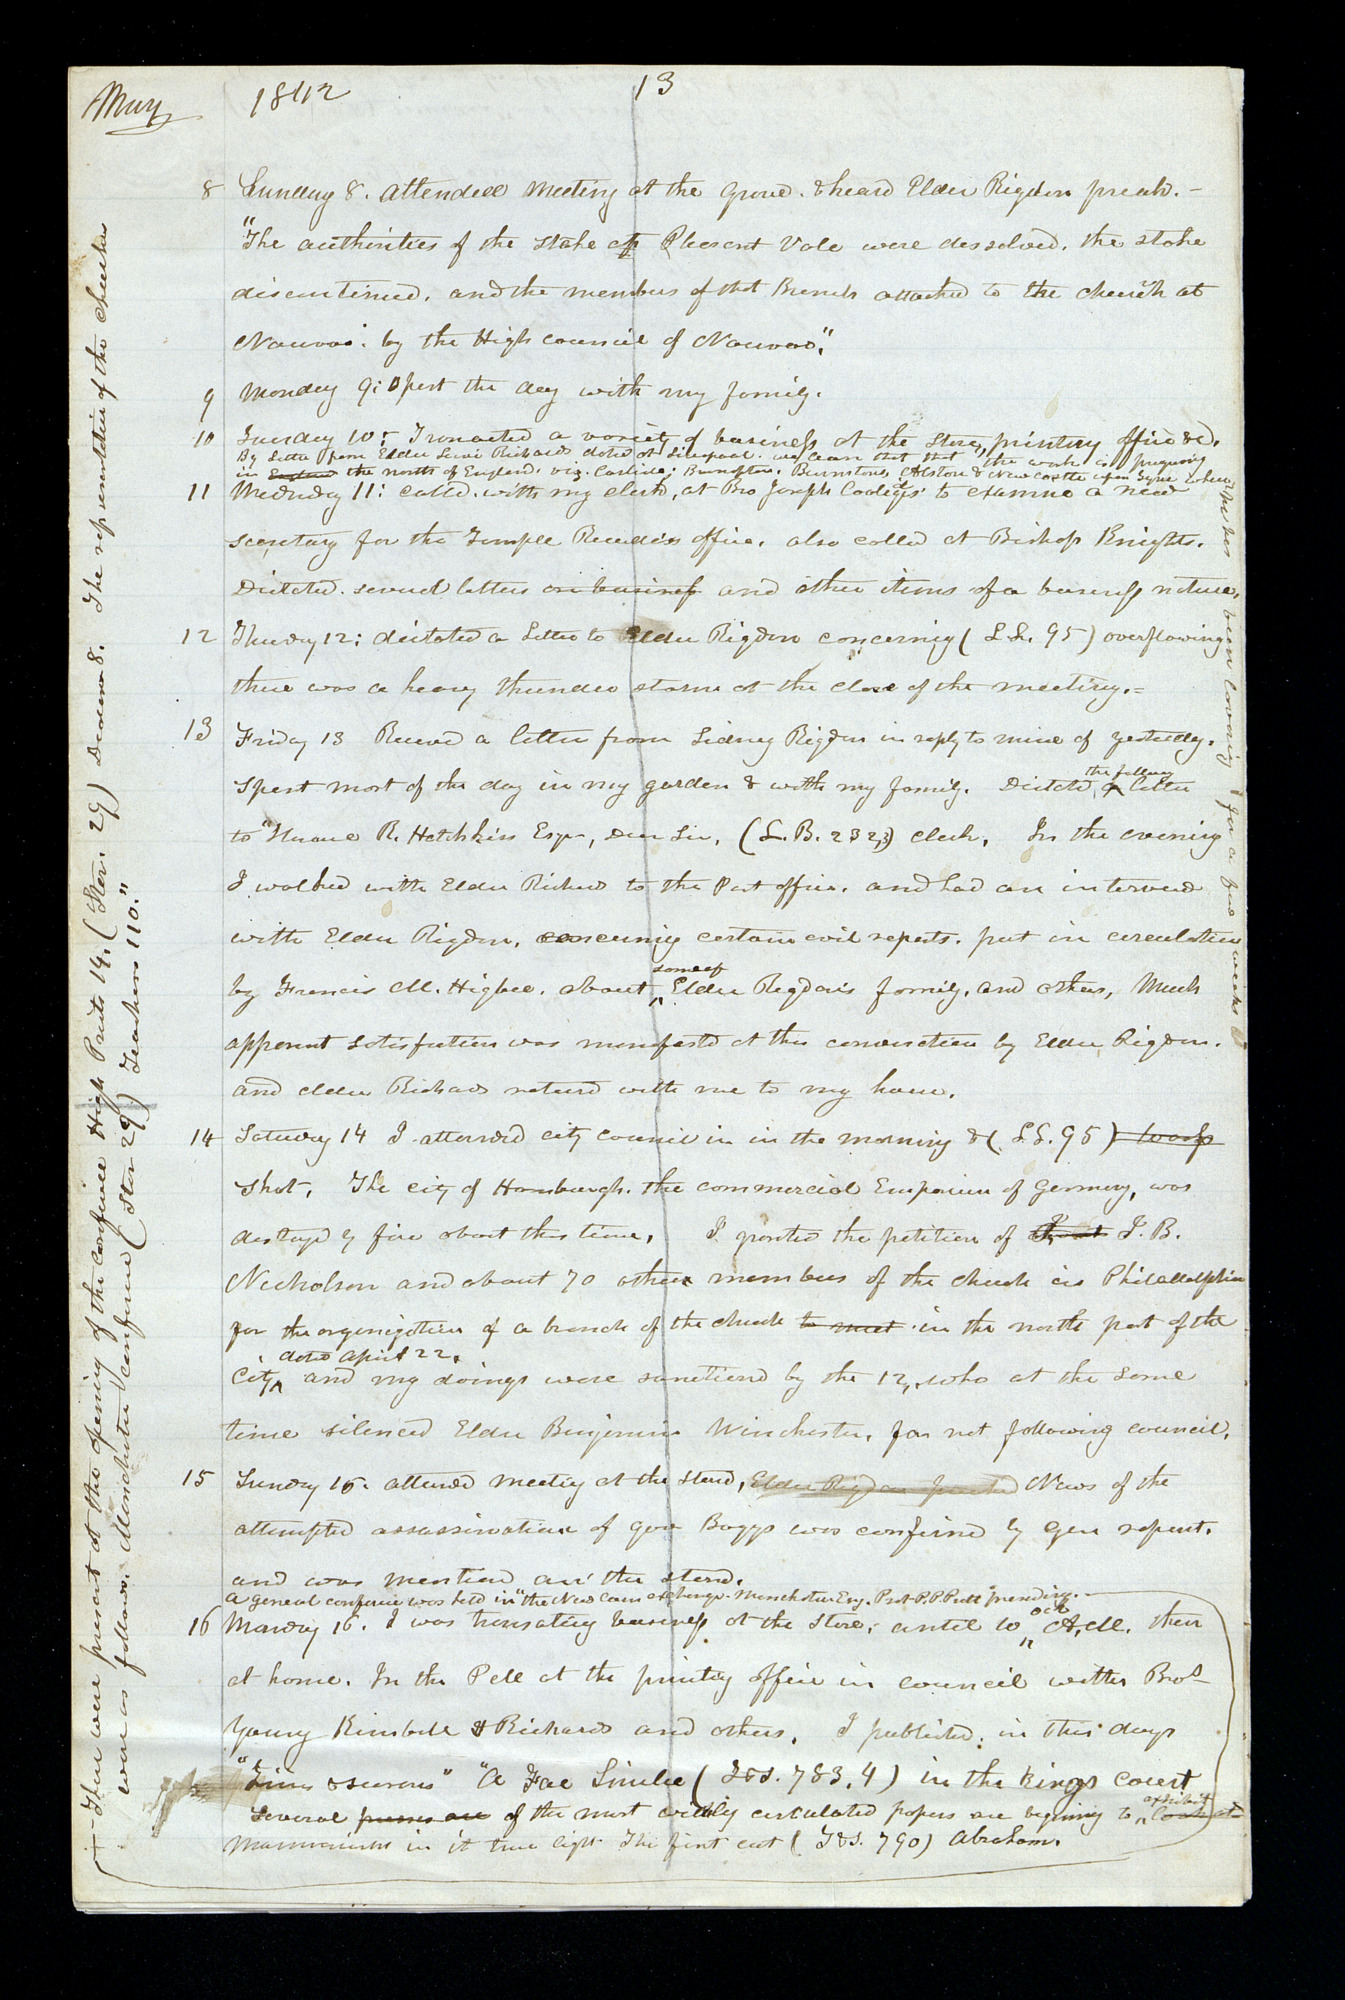 May 1842 13
8 Sunday 8. attended meeting at the grove. & heard Elder Rigdon preach.-
"The authorities of the stake of Pleasant Vale were dessolved. the stake
discontinued. and the members of that Branch attached to the church at
Nauvoo. by the High council of Nauvoo."
9 Monday 9: Spent the day with my family.
10 Tuesday 10: Transacted a variety of business at the store, printing office &c.
By Letter from Elder Levi Richards dated at Liverpool. we learn that the work is progressing
in England the north of England. viz. Carlisle; Brampton. Burnstones, Alston & New Castle upon Tyne where
he has been laboring for a few weeks
11 Wednesday 11: called. with my clerk, at Bro Joseph Coolidges to examine a new
secretary for the Temple Recorders office. also called at Bishop Knights.
Dictated. several letters on business and other items of a business nature.
12 Thursday 12: dictated a Letter to Elder Rigdon concerning (L.S. 95) overflowing
there was a heavy thunder storm at the close of the meeting.=
13 Friday 13 Received a letter from Sidney Rigdon in reply to mine of yesterday.
the following
Spent most of the day in my garden & with my family. Dictated ^ a letter
to "Horace R. Hotchkiss Esqr, Dear Sir, (L.B. 232,3) clerk. In the evening
I walked with Elder Richards to the Post office. and had an interview
with Elder Rigdon. concerning certain evil reports. put in circulation
some of
by Francis M. Higbee. about ^ Elder Rigdon's family, and others, Much
apparent satisfaction was manifested at this conversation by Elder Rigdon.
and elder Richards returned with me to my house.
14 Saturday 14 I attended city council in in the morning & (L.S. 95) was
shot. The city of Hamburgh. the commercial Emporium of Germany, was
destroyed by fire about this time. I granted the petition of J. B.
Nicholson and about 70 other members of the church in Philadelphia
for the organization of a branch of the church to meet in the north part of the
dated April 22.
City ^ and my doings were sanctioned by the 12, who at the same
time silenced Elder Benjamin Winchester, for not following council.
15 Sunday 15. attended meeting at the stand, Elder Rigdon preached News of the
attempted assassination of gov Boggs was confirmed by gen report.
and was mentioned on the stand.
A general conference was held in "the New Corn exchange. Manchester Eng. Prest P. P. Pratt presiding.
16 Monday 16. I was transacting business at the Store, until 10 oclk A.M. then
at home. In the P.M at the printing office in council with Bros
Young Kimball & Richards and others. I published. in this days
"Times & seasons" "A Fac Simile (T&S. 783,4) in the kings court
exhibit
Several presses are of the most widely circulated papers are begining to ^ look at
Mormonism in it true light The first cut (T&S. 790) Abraham.
+ There were present at the opening of the conference High Priests 14, (Star. 29) Deacons 8. The representation of the churches
was as follows. Manchester conference (Star 29) Teachers 110."